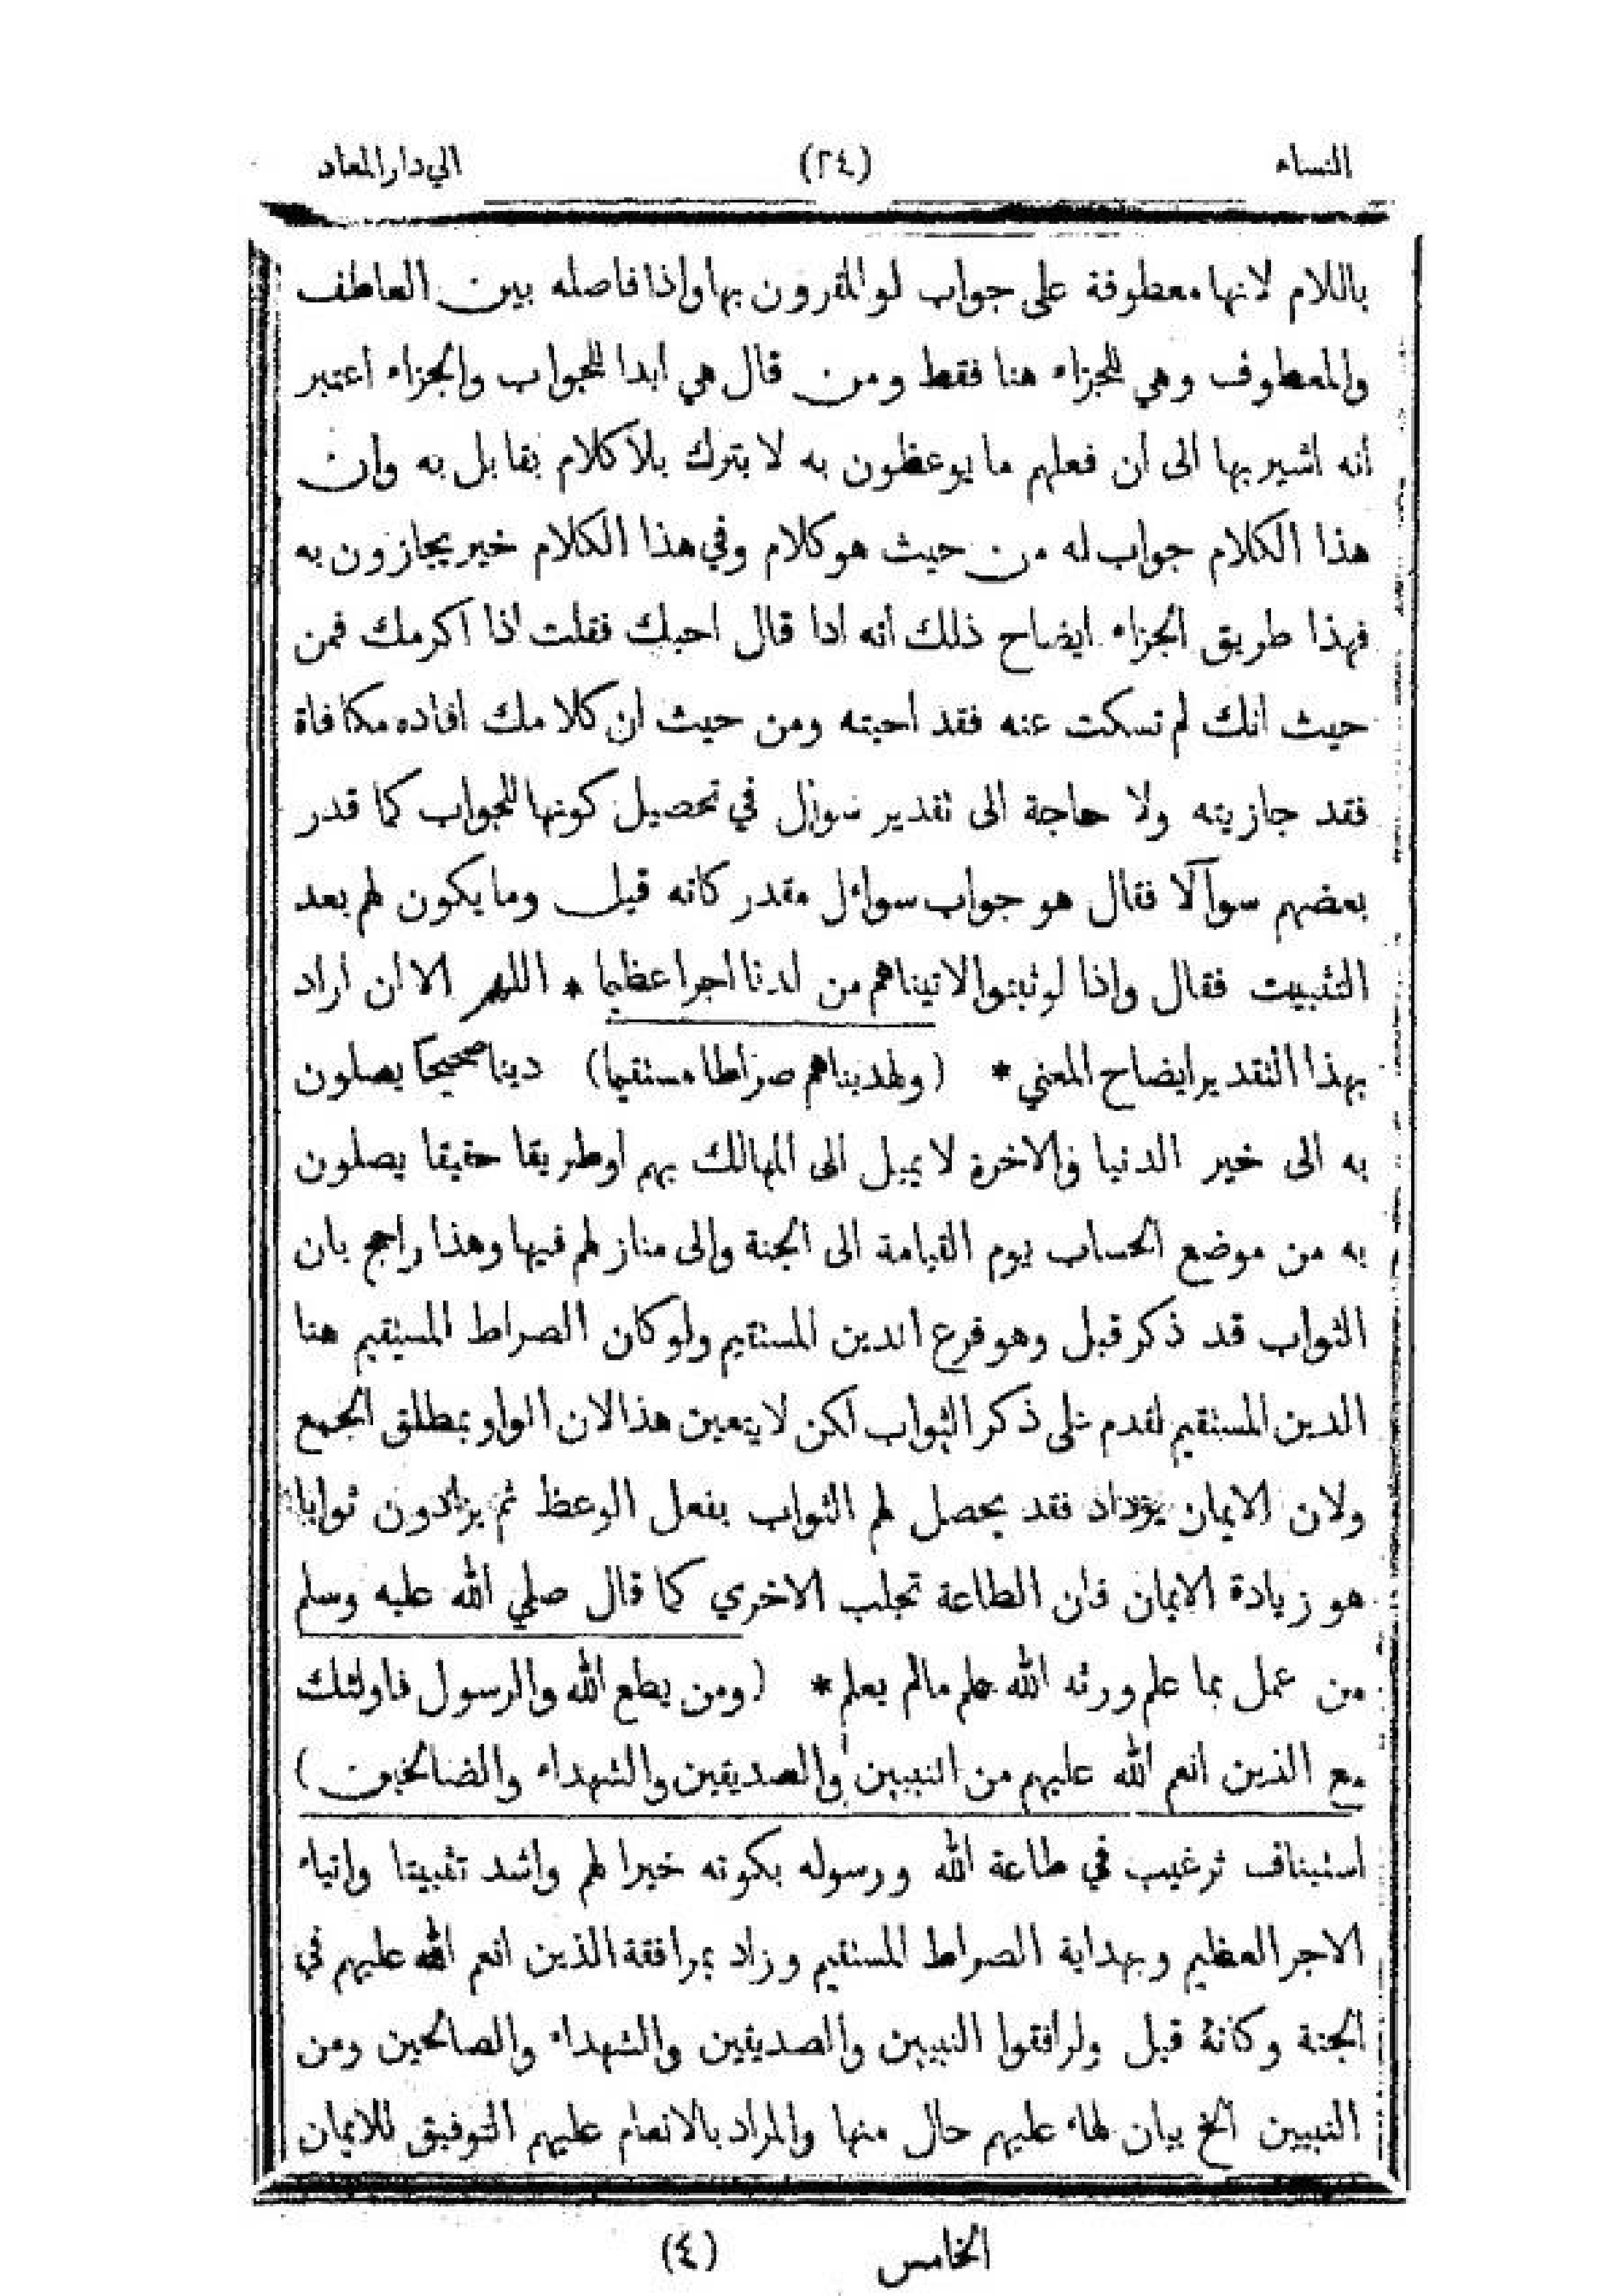 النساء (٢٤) الي دار المعاد
باللام لانها معطوفة على جواب لو المقرون بها واذا فاصله بين العاطف
والمعطوف وهي للجزاء هنا فقط ومن قال هي ابدا للجواب والجزاء اعتبر
أنه اشير بها الى ان فعلهم ما يوعظون به لا يترك بلا كلام يقابل به وان
هذا الكلام جواب له من حيث هو كلام وفي هذا الكلام خير يجازون به
فهذا طريق الجزاء ايضاح ذلك أنه اذا قال احبك فقلت اذا اكرمك فمن
حيث انك لم تسكت عنه فقد اجبته ومن حيث ان كلامك افاده مكافاة
فقد جازيته ولا حاجة الى تقدير سوال في تحصيل كونها للجواب كما قدر
بعضهم سوآلا فقال هو جواب سوائل مقدر كانه قيل وما يكون لهم بعد
التثبيت فقال واذا لو ثبتوا لاتيناهم من لدنا اجرا عظيما * اللهم الا ان اراد
بهذا التقدير ايضاح المعني * (ولهديناهم صراطا مستقيما) دينا صحيحا يصلون
به الى خير الدنيا والاخرة لا يميل الى المهالك بهم او طريقا حقيقا يصلون
به من موضع الحساب يوم القيامة الى الجنة والى منازلهم فيها وهذا راجح بان
الثواب قد ذكر قبل وهو فرع الدين المستقيم ولو كان الصراط المستقيم هنا
الدين المستقيم لقدم على ذكر الثواب لكن لا يتعين هذا لان الواو لمطلق الجمع
ولان الايمان يزداد فقد يحصل لهم الثواب بفعل الوعظ ثم يزادون ثوابا
هو زيادة الايمان فان الطاعة تجلب الاخري كما قال صلي الله عليه وسلم
من عمل بما علم ورثه الله علم مالم يعلم * (ومن يطع الله والرسول فاولئك
مع الذين انعم الله عليهم من النبيين والصديقين والشهداء والصالحين)
استيناف ترغيب في طاعة الله ورسوله بكونه خيرا لهم واشد تثبيتا واتياء
الاجر العظيم وبهداية الصراط المستقيم وزاد بمرافقة الذين انعم الله عليهم في
الجنة وكأنه قيل ولرافقوا النبيين والصديقين والشهداء والصالحين ومن
النبيين الخ بيان لهاء عليهم حال منها والمراد بالانعام عليهم التوفيق للايمان
الخامس (٤)